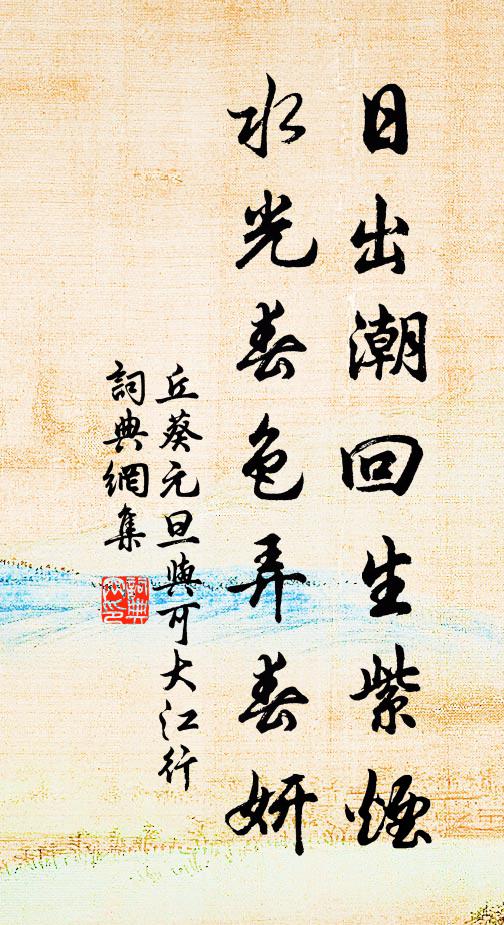 日出潮回生紫煙
水光春色弄春妍
丘葵元旦與可大江行
詞典網集